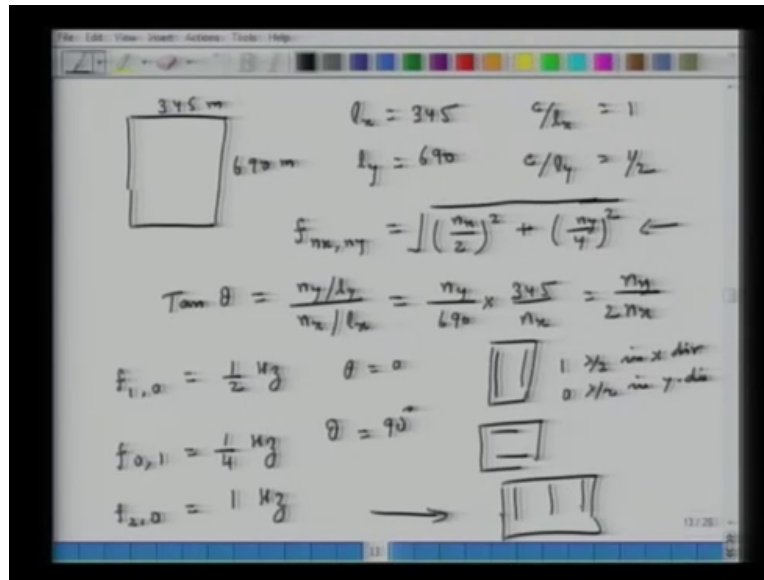 File Edit View Insert Actions Tools Help
345 m
690 m
lx = 345 c/lx = 1
ly = 690 c/ly = 1/2
f nx, ny = √( (nx/2)² + (ny/4)² ) ←
Tan θ = (ny/ly)/(nx/lx) = ny/690 × 345/nx = ny/2nx
f1,0 = 1/2 Hz θ = 0
1 λ/2 in x dir
0 λ/2 in y-dir
f0,1 = 1/4 Hz θ = 90°
f2,0 = 1 Hz →
13